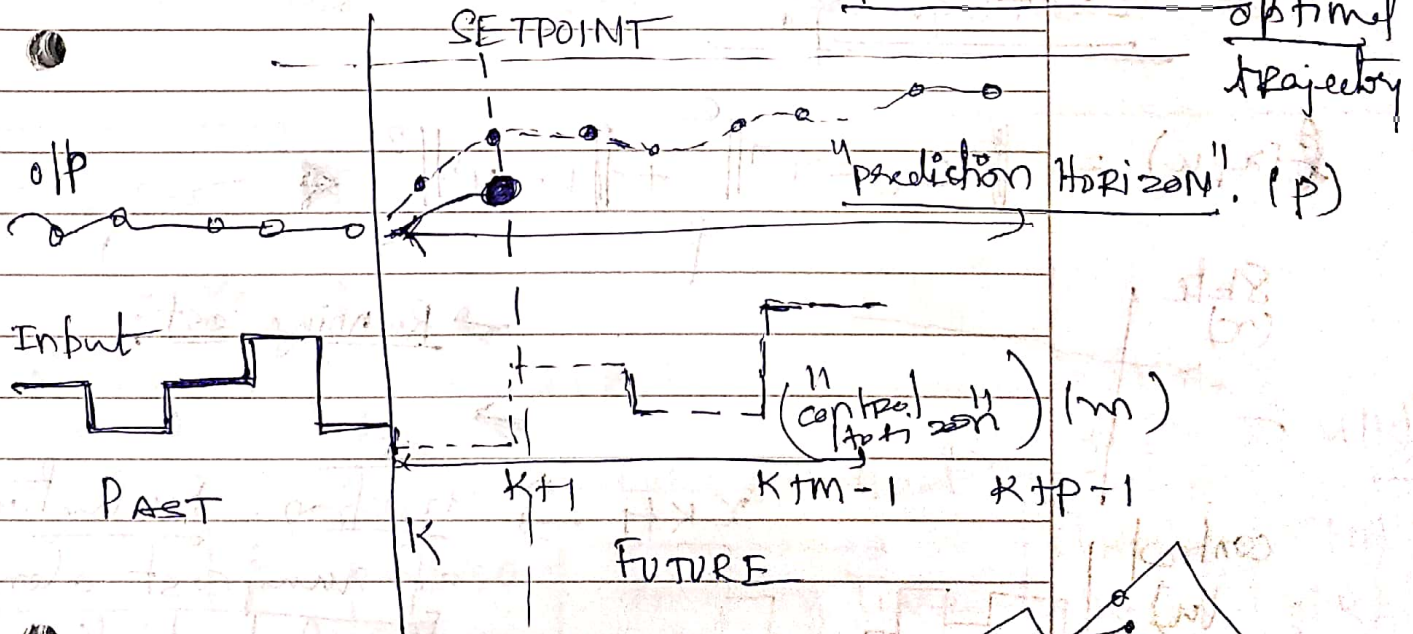 SETPOINT
optimal
trajectory
o/p
"prediction HORIZON". (p)
Input
"control horizon" (m)
K+1 K+m-1 K+p-1
PAST
K
FUTURE